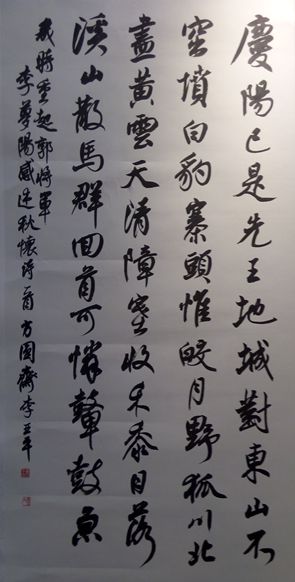 慶陽已是先王地城對東山不
窋墳白豹寨頭惟皎月野狐川北
盡黃雲天清障塞收禾黍日落
溪山散馬群回首可憐鼙鼓急
幾時重起郭將軍
李夢陽秋懷詩一首方圓齋李平